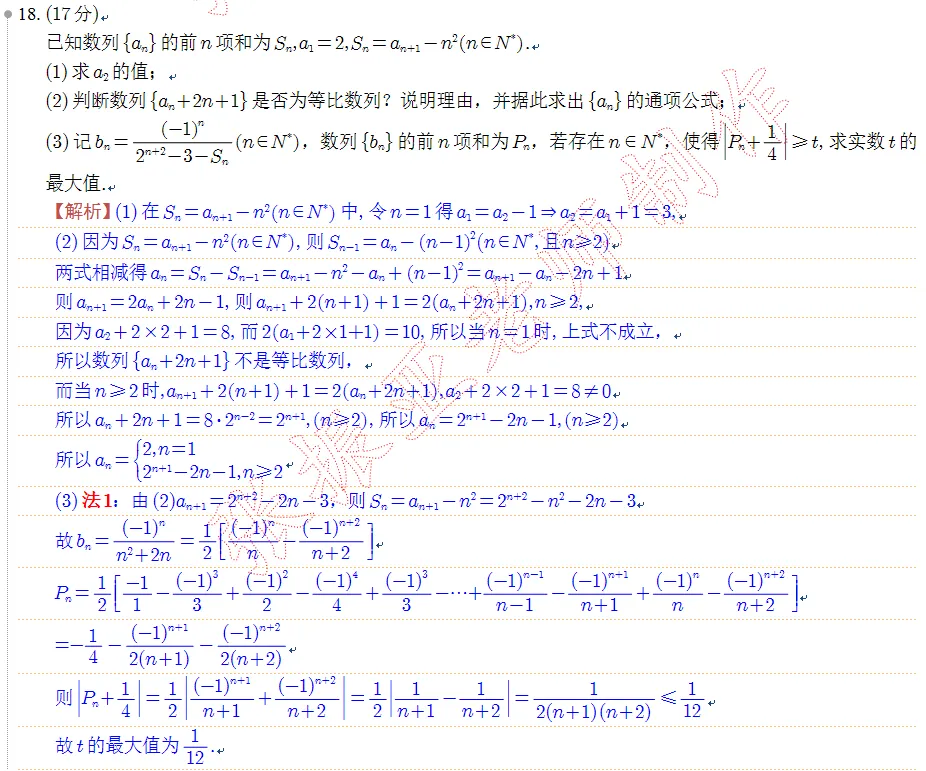 18. (17分)
已知数列{aₙ}的前n项和为Sₙ,a₁=2,Sₙ=aₙ₊₁−n²(n∈N*).
(1)求a₂的值；
(2)判断数列{aₙ+2n+1}是否为等比数列？说明理由，并据此求出{aₙ}的通项公式；
(3)记bₙ=(−1)ⁿ/(2ⁿ⁺²−3−Sₙ)(n∈N*)，数列{bₙ}的前n项和为Pₙ，若存在n∈N*，使得|Pₙ+1/4|⩾t,求实数t的
最大值.
【解析】(1)在Sₙ=aₙ₊₁−n²(n∈N*)中,令n=1得a₁=a₂−1⇒a₂=a₁+1=3,
(2)因为Sₙ=aₙ₊₁−n²(n∈N*),则Sₙ₋₁=aₙ−(n−1)²(n∈N*,且n⩾2)
两式相减得aₙ=Sₙ−Sₙ₋₁=aₙ₊₁−n²−aₙ+(n−1)²=aₙ₊₁−aₙ−2n+1
则aₙ₊₁=2aₙ+2n−1,则aₙ₊₁+2(n+1)+1=2(aₙ+2n+1),n⩾2,
因为a₂+2×2+1=8,而2(a₁+2×1+1)=10,所以当n=1时,上式不成立，
所以数列{aₙ+2n+1}不是等比数列，
而当n⩾2时,aₙ₊₁+2(n+1)+1=2(aₙ+2n+1),a₂+2×2+1=8≠0
所以aₙ+2n+1=8·2ⁿ⁻²=2ⁿ⁺¹,(n⩾2),所以aₙ=2ⁿ⁺¹−2n−1,(n⩾2)
所以aₙ={2,n=1
2ⁿ⁺¹−2n−1,n⩾2
(3)法1：由(2)aₙ₊₁=2ⁿ⁺²−2n−3，则Sₙ=aₙ₊₁−n²=2ⁿ⁺²−n²−2n−3
故bₙ=(−1)ⁿ/(n²+2n)=1/2[(−1)ⁿ/n−(−1)ⁿ⁺²/(n+2)]
Pₙ=1/2[−1/1−(−1)³/3+(−1)²/2−(−1)⁴/4+(−1)³/3−⋯+(−1)ⁿ⁻¹/(n−1)−(−1)ⁿ⁺¹/(n+1)+(−1)ⁿ/n−(−1)ⁿ⁺²/(n+2)]
=−1/4−(−1)ⁿ⁺¹/(2(n+1))−(−1)ⁿ⁺²/(2(n+2))
则|Pₙ+1/4|=1/2|(−1)ⁿ⁺¹/(n+1)+(−1)ⁿ⁺²/(n+2)|=1/2|1/(n+1)−1/(n+2)|=1/(2(n+1)(n+2))⩽1/12
故t的最大值为1/12.
张振亚老师制作